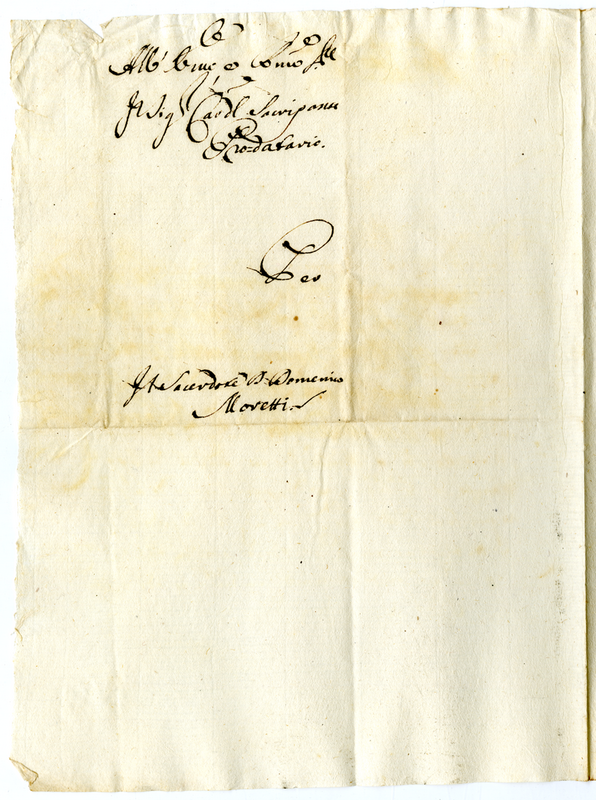 All' Emo e Rmo Sig.re
Il Sig.r Card.l Sacripante
Pro-Datario.
Per
Il Sacerdote D. Domenico
Moretti.